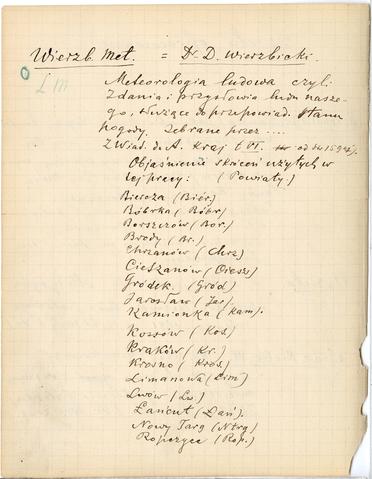 Wierzb. Met. = Dr. D. Wierzbicki.
L m
Meteorologia ludowa czyli
Zdania i przysłowia ludu nasze-
go, służące do przepowiad. stanu
pogody. Zebrane przez ....
Zwiad. do A. Kraj t. VI. od str. 159
Objaśnienie skróceń użytych w
tej pracy: (Powiaty.)
Biercza (Bier.)
Bóbrka (Bóbr.)
Borszczów (Bor.)
Brody (Br.)
Chrzanów (Chrz)
Cieszanów (Ciesz)
Gródek. (Gród)
Jarosław (Jar).
Kamionka (Kam).
Kossów (Kos)
Kraków (Kr.)
Krosno (Kros.)
Limanowa (Lim)
Lwów (Lw.)
Łańcut (Łań).
Nowy Targ (Ntrg)
Ropczyce (Rop.)